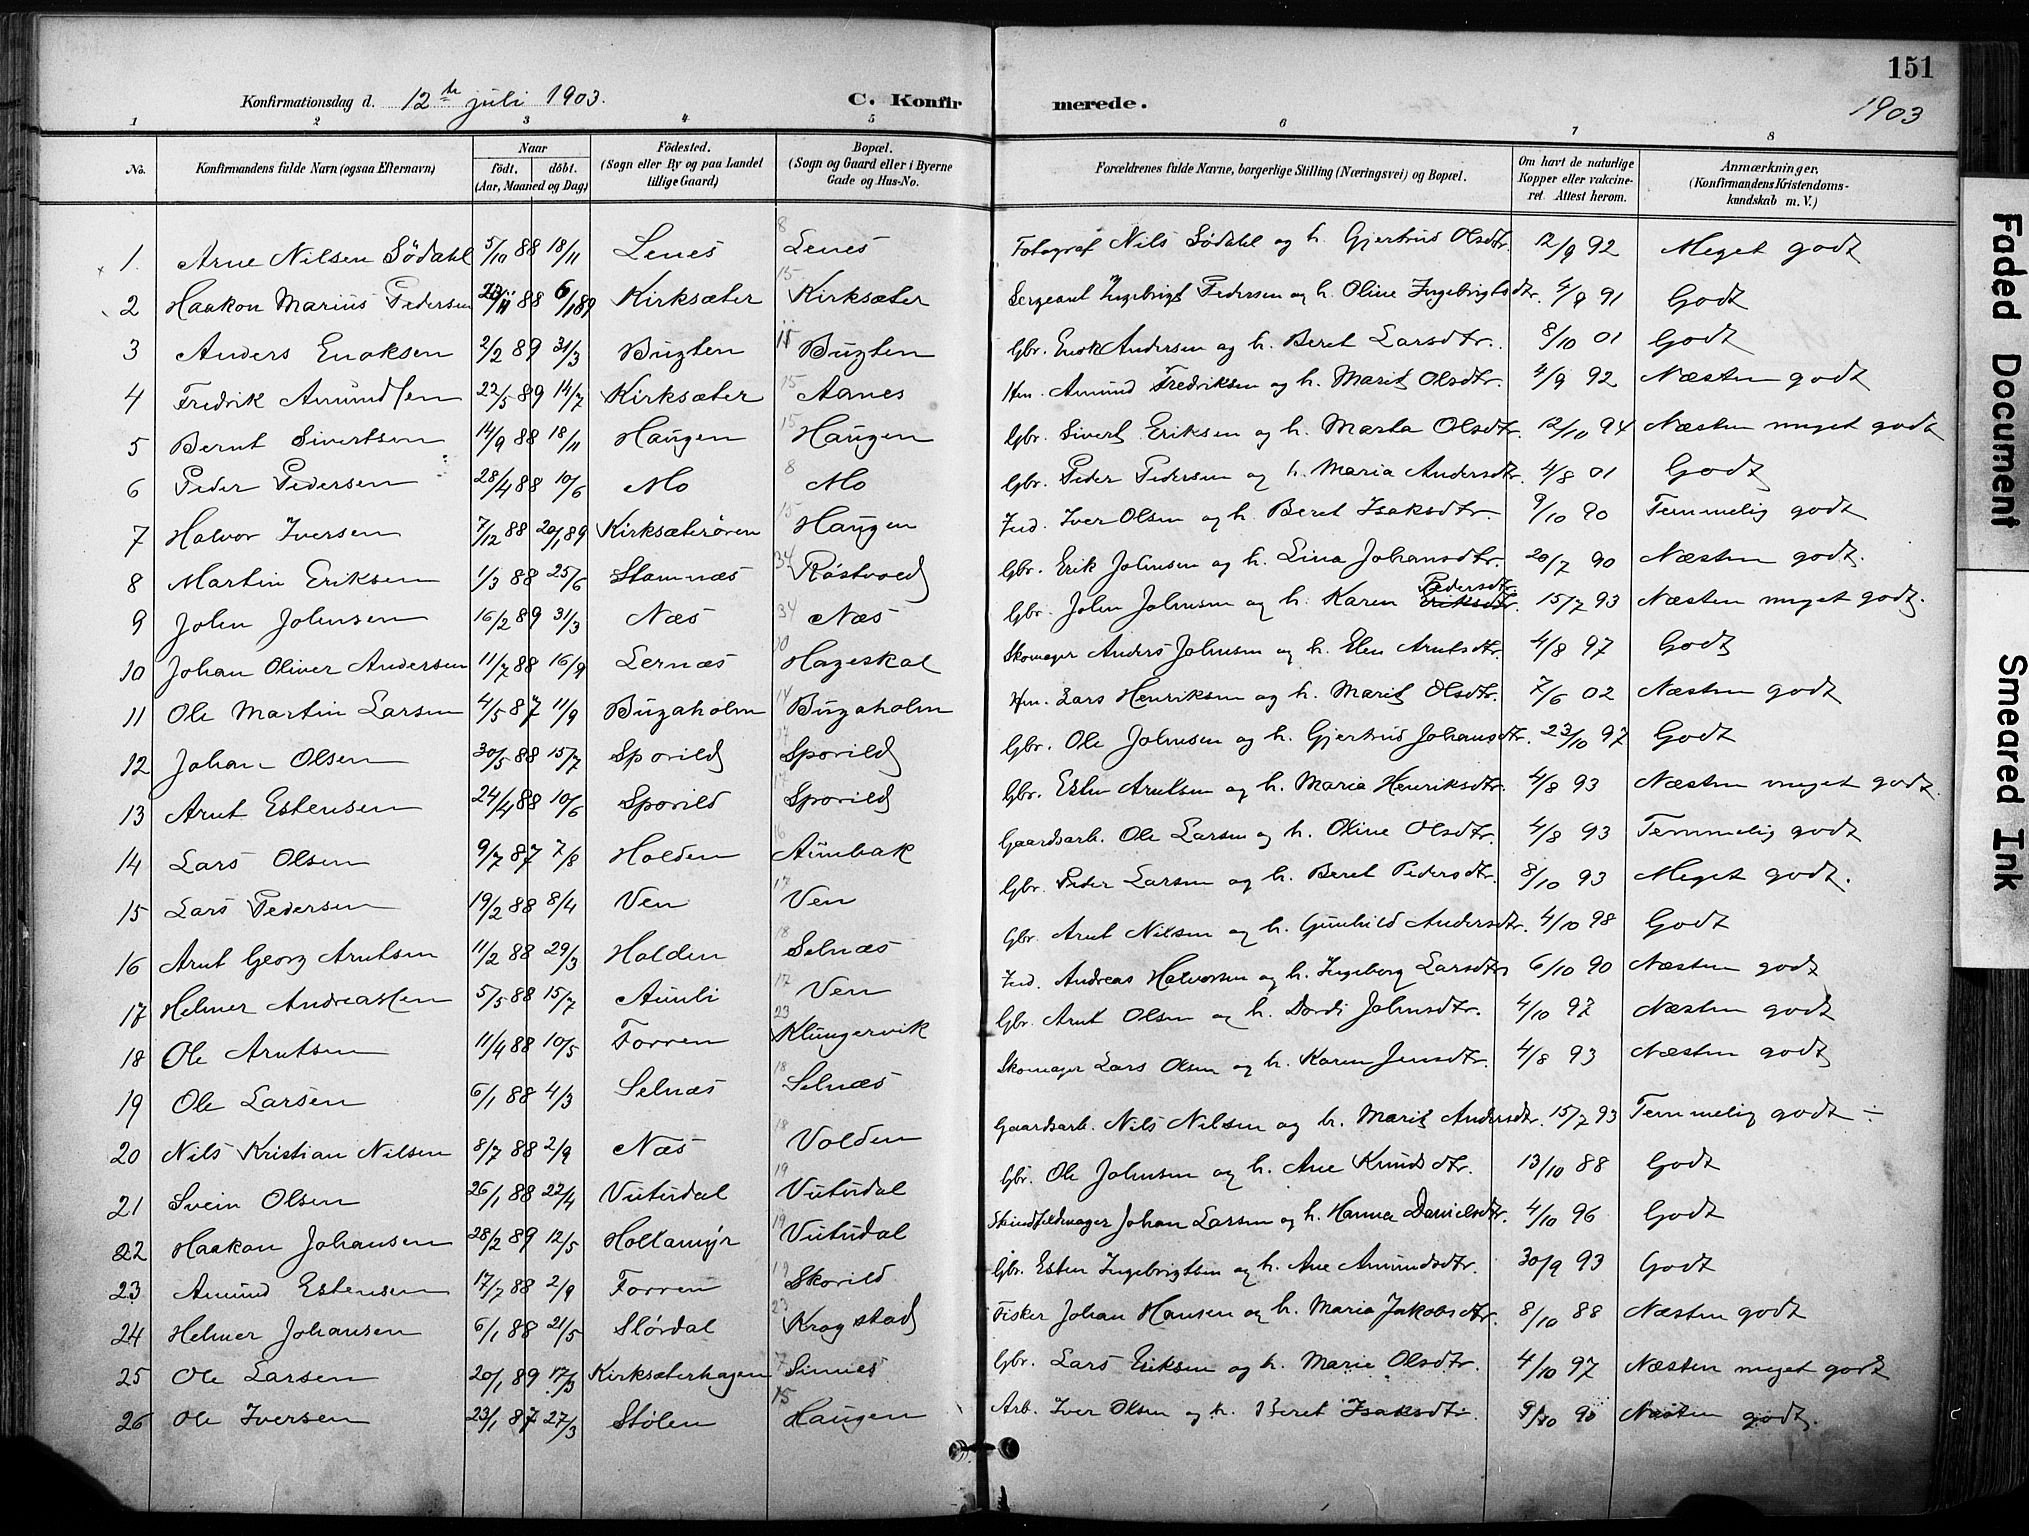 151
Konfirmationsdag d. 12te juli 1903. C. Konfirmerede. 1903
1 2 3 4 5 6 7 8
No. Konfirmandens fulde Navn (ogsaa Efternavn) Naar födt. döbt. (Aar, Maaned og Dag) Födested. (Sogn eller By og paa Landet tillige Gaard) Bopæl. (Sogn og Gaard eller i Byerne Gade og Hus-No. Forældrenes fulde Navne, borgerlige Stilling (Næringsvei) og Bopæl. Om havt de naturlige Kopper eller vakcineret. Attest herom. Anmærkninger. (Konfirmandens Kristendomskundskab m. V.)
1. Arne Nilsen Södahl 5/10 88 18/11 Lenes 8 Lenes Fotograf Nils Södahl og h. Gjertrud Olsdtr. 12/9 92 Meget godt
2 Haakon Marius Pedersen 88 6/1 89 Kirksæter 15 Kirksæter Sergeant Ingebrigt Pedersen og h. Oline Ingebrigtsdtr. 4/9 91 Godt
3 Anders Enoksen 2/2 89 31/3 Bugten 11 Bugten Gbr. Enok Andersen og h. Beret Larsdtr. 8/10 01 Godt
4 Fredrik Amundsen 22/5 89 14/7 Kirksæter 15 Aanes Hm. Amund Fredriksen og h. Marit Olsdtr. 4/9 92 Næsten godt
5 Bernt Sivertsen 14/9 88 18/11 Haugen 15 Haugen Gbr. Sivert Eriksen og h. Marta Olsdtr. 12/10 94 Næsten meget godt
6 Peder Pedersen 28/4 88 10/6 Mo 8 Mo Gbr. Peder Pedersen og h. Maria Andersdtr. 4/8 01 Godt
7 Halvor Iversen 7/12 88 20/1 89 Kirksæterören 15 Haugen Ind. Iver Olsen og h. Beret Isaksdtr. 9/10 90 Temmelig godt
8 Martin Eriksen 1/3 88 25/6 Stamnæs 34 Röstvold Gbr. Erik Johnsen og h. Lina Johansdtr. 20/7 90 Næsten godt.
9 John Johnsen 16/2 89 31/3 Næs 34 Næs Gbr. John Johnsen og h. Karen Eriksdtr. Pedersdtr. 15/7 93 Næsten meget godt.
10 Johan Oliver Andersen 11/7 88 16/9 Lernæs 20 Hageskal Skomager Anders Johnsen og h. Elen Arntsdtr. 4/8 97 Godt
11 Ole Martin Larsen 4/5 87 11/9 Bugaholm 14 Bugaholm Hm. Lars Henriksen og h. Marit Olsdtr. 7/6 02 Næsten godt
12 Johan Olsen 30/5 88 15/7 Sporild 17 Sporild Gbr. Ole Johnsen og h. Gjertrud Johansdtr. 23/10 97 Godt
13 Arnt Estensen 24/4 88 10/6 Sporild 17 Sporild Gbr. Esten Arntsen og h. Maria Henriksdtr. 4/8 93 Næsten meget godt.
14 Lars Olsen 9/7 87 7/8 Holden 16 Aunbak Gaardsarb. Ole Larsen og h. Oline Olsdtr. 4/8 93 Temmelig godt
15 Lars Pedersen 19/2 88 8/4 Ven 17 Ven Gbr. Peder Larsen og h. Beret Pedersdtr. 8/10 93 Meget godt.
16 Arnt Georg Arntsen 11/2 88 29/3 Holden 18 Selnæs Gbr. Arnt Nilsen og h. Gunhild Andersdtr. 4/10 98 Godt
17 Helmer Andreassen 5/5 88 15/7 Aunli 17 Ven Ind. Andreas Halvorsen og h. Ingeborg Larsdtr 6/10 90 Næsten godt
18 Ole Arntsen 11/4 88 10/5 Forren 23 Klungervik Gbr. Arnt Olsen og h. Dordi Johnsdtr. 4/10 97 Næsten godt
19 Ole Larsen 6/1 88 4/3 Selnæs 18 Selnæs Skomager Lars Olsen og h. Karen Jensdtr. 4/8 93 Næsten godt
20 Nils Kristian Nilsen 8/7 88 2/9 Næs 18 Volden Gaardsarb. Nils Nilsen og h. Marit Andersdtr. 15/7 93 Temmelig godt ÷
21 Svein Olsen 26/1 88 22/4 Vutudal 19 Vutudal Gbr. Ole Johnsen og h. Ane Knudsdtr. 13/10 88 Godt
22 Haakon Johansen 28/2 89 12/5 Holtamyr 19 Vutudal Skindfeldmager Johan Larsen og h. Hanna Danielsdtr. 4/10 96 Godt
23 Amund Estensen 17/7 88 2/9 Forren 19 Skorild Gbr. Esten Ingebrigtsen og h. Ane Amundsdtr. 30/9 93 Godt
24 Helmer Johansen 6/1 88 21/5 Slördal 23 Krogstad Fisker Johan Hansen og h. Maria Jakobsdtr. 8/10 88 Næsten godt
25 Ole Larsen 20/1 89 17/3 Kirksæterhagen 7 Sinnes Gbr. Lars Eriksen og h. Marie Olsdtr. 4/10 97 Næsten meget godt
26 Ole Iversen 23/1 87 27/3 Stölen 15 Haugen Arb. Iver Olsen og h. Beret Isaksdtr. 9/10 90 Næsten godt.
Faded Document
Smeared Ink